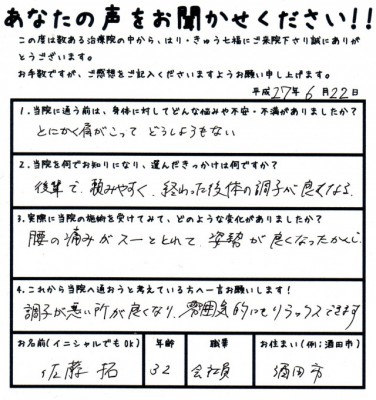 あなたの声をお聞かせください!!
この度は数ある治療院の中から、はり・きゅう七福にご来院下さり誠にありが
とうございます。
お手数ですが、ご感想をご記入くださいますようお願い申し上げます。
平成27年6月22日
1.当院に通う前は、身体に対してどんな悩みや不安・不満がありましたか?
とにかく肩がこって どうしようもない
2.当院を何でお知りになり、選んだきっかけは何ですか?
後輩で、頼みやすく、終わった後体の調子が良くなる
3.実際に当院の施術を受けてみて、どのような変化がありましたか?
腰の痛みがスーととれて、姿勢が良くなったかんじ
4.これから当院へ通おうと考えている方へ一言お願いします!
調子が悪い所が良くなり、雰囲気的にもリラックスできます
お名前(イニシャルでもOK) 年齢 職業 お住まい(例:酒田市)
佐藤 拓 32 会社員 酒田市